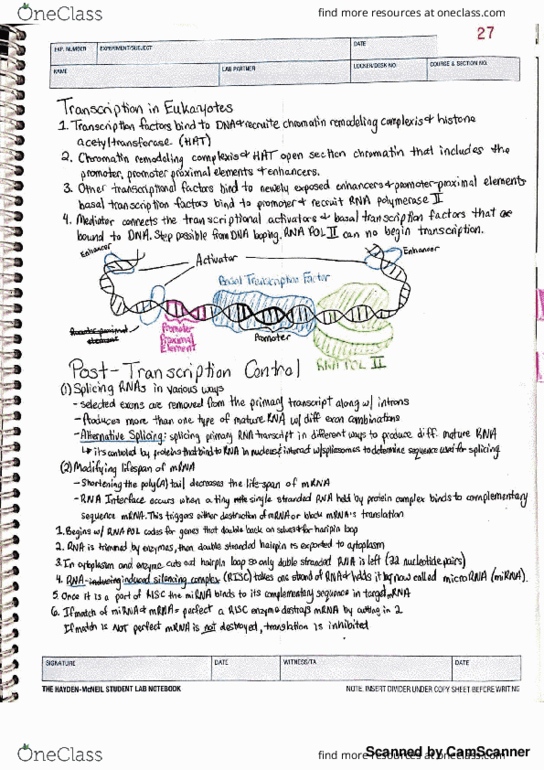 OneClass
find more resources at oneclass.com
27
EXP. NUMBER
EXPERIMENT/SUBJECT
DATE
NAME
LAB PARTNER
LOCKER/DESK NO.
COURSE & SECTION NO.
Transcription in Eukaryotes
1. Transcription factors bind to DNA & recruite chromatin remodeling complexis & histone
acetyltransferase. (HAT)
2. Chromatin remodeling complexis & HAT open section chromatin that includes the
promoter, promoter proximal elements & enhancers.
3. Other transcriptional factors bind to newly exposed enhancers & promoter-proximal elements
basal transcription factors bind to promoter & recruit RNA polymerase II
4. Mediator connects the transcriptional activators & basal transcription factors that are
bound to DNA. Step possible from DNA looping. RNA POL II can no begin transcription.
Enhancer
Activator
Enhancer
Basal Transcription Factor
Promoter
Proximal
Element
Promoter
RNA POL II
Post-Transcription Control
(1) Splicing RNAs in various ways
- selected exons are removed from the primary transcript along w/ introns
- Produces more than one type of mature RNA w/ diff exon combinations
- Alternative Splicing: splicing primary RNA transcript in different ways to produce diff. mature RNA
↳ it's controled by proteins that bind to RNA in nucleus & interact w/ splicesomes to determine sequence used for splicing
(2) Modifying lifespan of mRNA
- Shortening the poly(A) tail decreases the life span of mRNA
- RNA Interface occurs when a tiny single stranded RNA held by protein complex binds to complementary
sequence mRNA. This triggers either destruction of mRNA or block mRNA's translation
1. Begins w/ RNA POL codes for genes that double back on selves for hairpin loop
2. RNA is trimmed by enzymes, then double stranded hairpin is exported to cytoplasm
3. In cytoplasm and enzyme cuts out hairpin loop so only double stranded RNA is left (22 nucleotide pairs)
4. RNA-induced silencing complex (RISC) takes one strand of RNA & holds it by now called micro RNA (miRNA).
5. Once it is a part of RISC the miRNA binds to its complementary sequence in target mRNA
6. If match of miRNA & mRNA = perfect a RISC enzyme destroys mRNA by cutting in 2
If match is NOT perfect mRNA is not destroyed, translation is inhibited
SIGNATURE
DATE
WITNESS/TA
DATE
THE HAYDEN-McNEIL STUDENT LAB NOTEBOOK
NOTE: INSERT DIVIDER UNDER COPY SHEET BEFORE WRITING
OneClass
find more resources at oneclass.com
Scanned by CamScanner